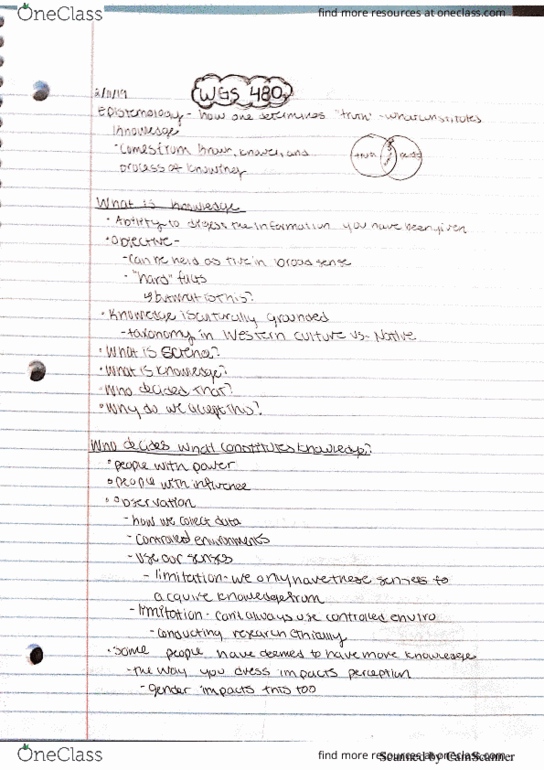 OneClass
find more resources at oneclass.com
WGS 480
Epistemology - how one determines "truth" - what constitutes
knowledge
- Comes from known, knower, and
process of knowing
truth
What is knowledge
• Ability to digest the information you have been given
• Objective -
- can be held as true in broad sense
- "hard" facts
↳ but what is this?
• Knowledge is culturally grounded
- taxonomy in Western culture vs. Native
• What is science?
• What is knowledge?
• Who decides that?
• Why do we accept this?
Who decides what constitutes knowledge?
• people with power
• people with influence
• observation
- how we collect data
- Controlled environments
- Use our senses
- limitation - we only have these senses to
acquire knowledge from
- limitation - can't always use controlled enviro
- conducting research ethically
• Some people have deemed to have more knowledge
- the way you dress impacts perception
- gender impacts this too
OneClass
find more resources at oneclass.com
Scanned by CamScanner